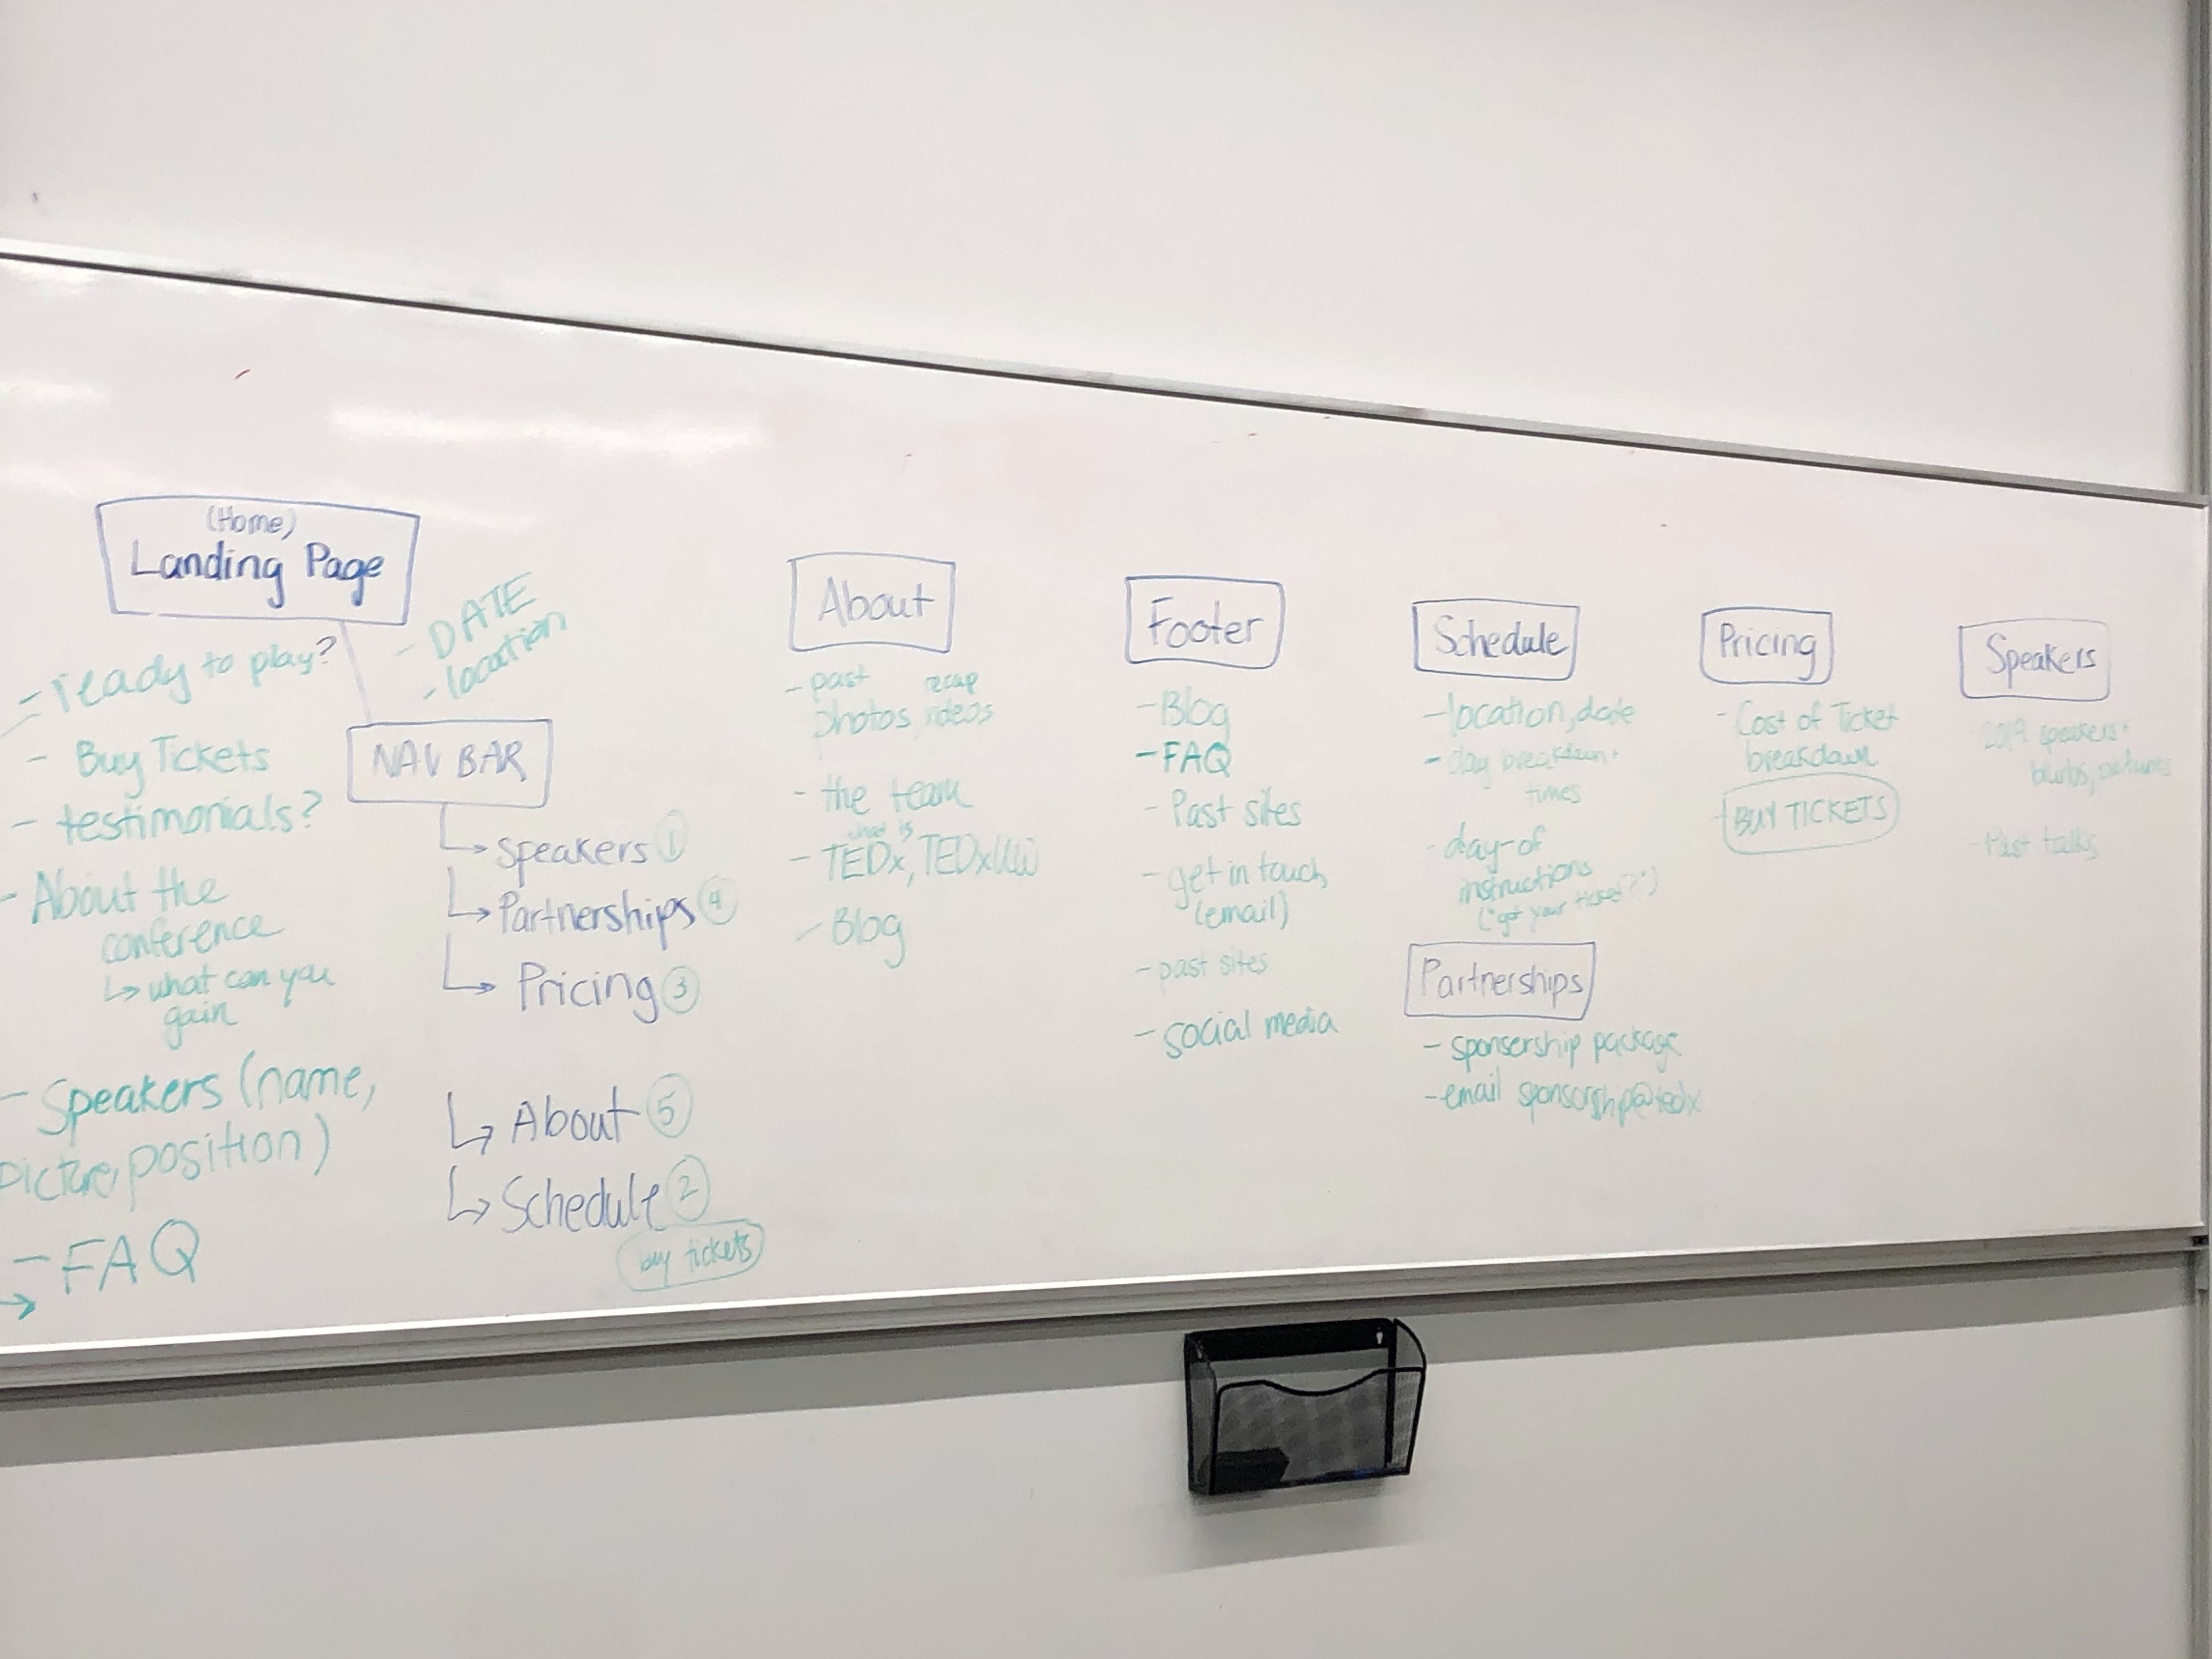 (Home)
Landing Page
- ready to play?
- Buy Tickets
- testimonials?
- About the
conference
↳ what can you
gain
- Speakers (name,
picture, position)
- FAQ
→
- DATE
- location
NAV BAR
↳ Speakers ①
↳ Partnerships ④
↳ Pricing ③
↳ About ⑤
↳ Schedule ②
buy tickets
About
- past recap
photos, videos
- the team
what is
- TEDx, TEDxUW
- Blog
Footer
- Blog
- FAQ
- Past sites
- get in touch
(email)
- past sites
- social media
Schedule
- location, date
- day breakdown +
times
- day-of
instructions
("got your ticket?")
Partnerships
- sponsership package
- email sponsorship@tedx
Pricing
- Cost of Ticket
breakdown
BUY TICKETS
Speakers
- 2019 speakers +
blurbs, pictures
- Past talks